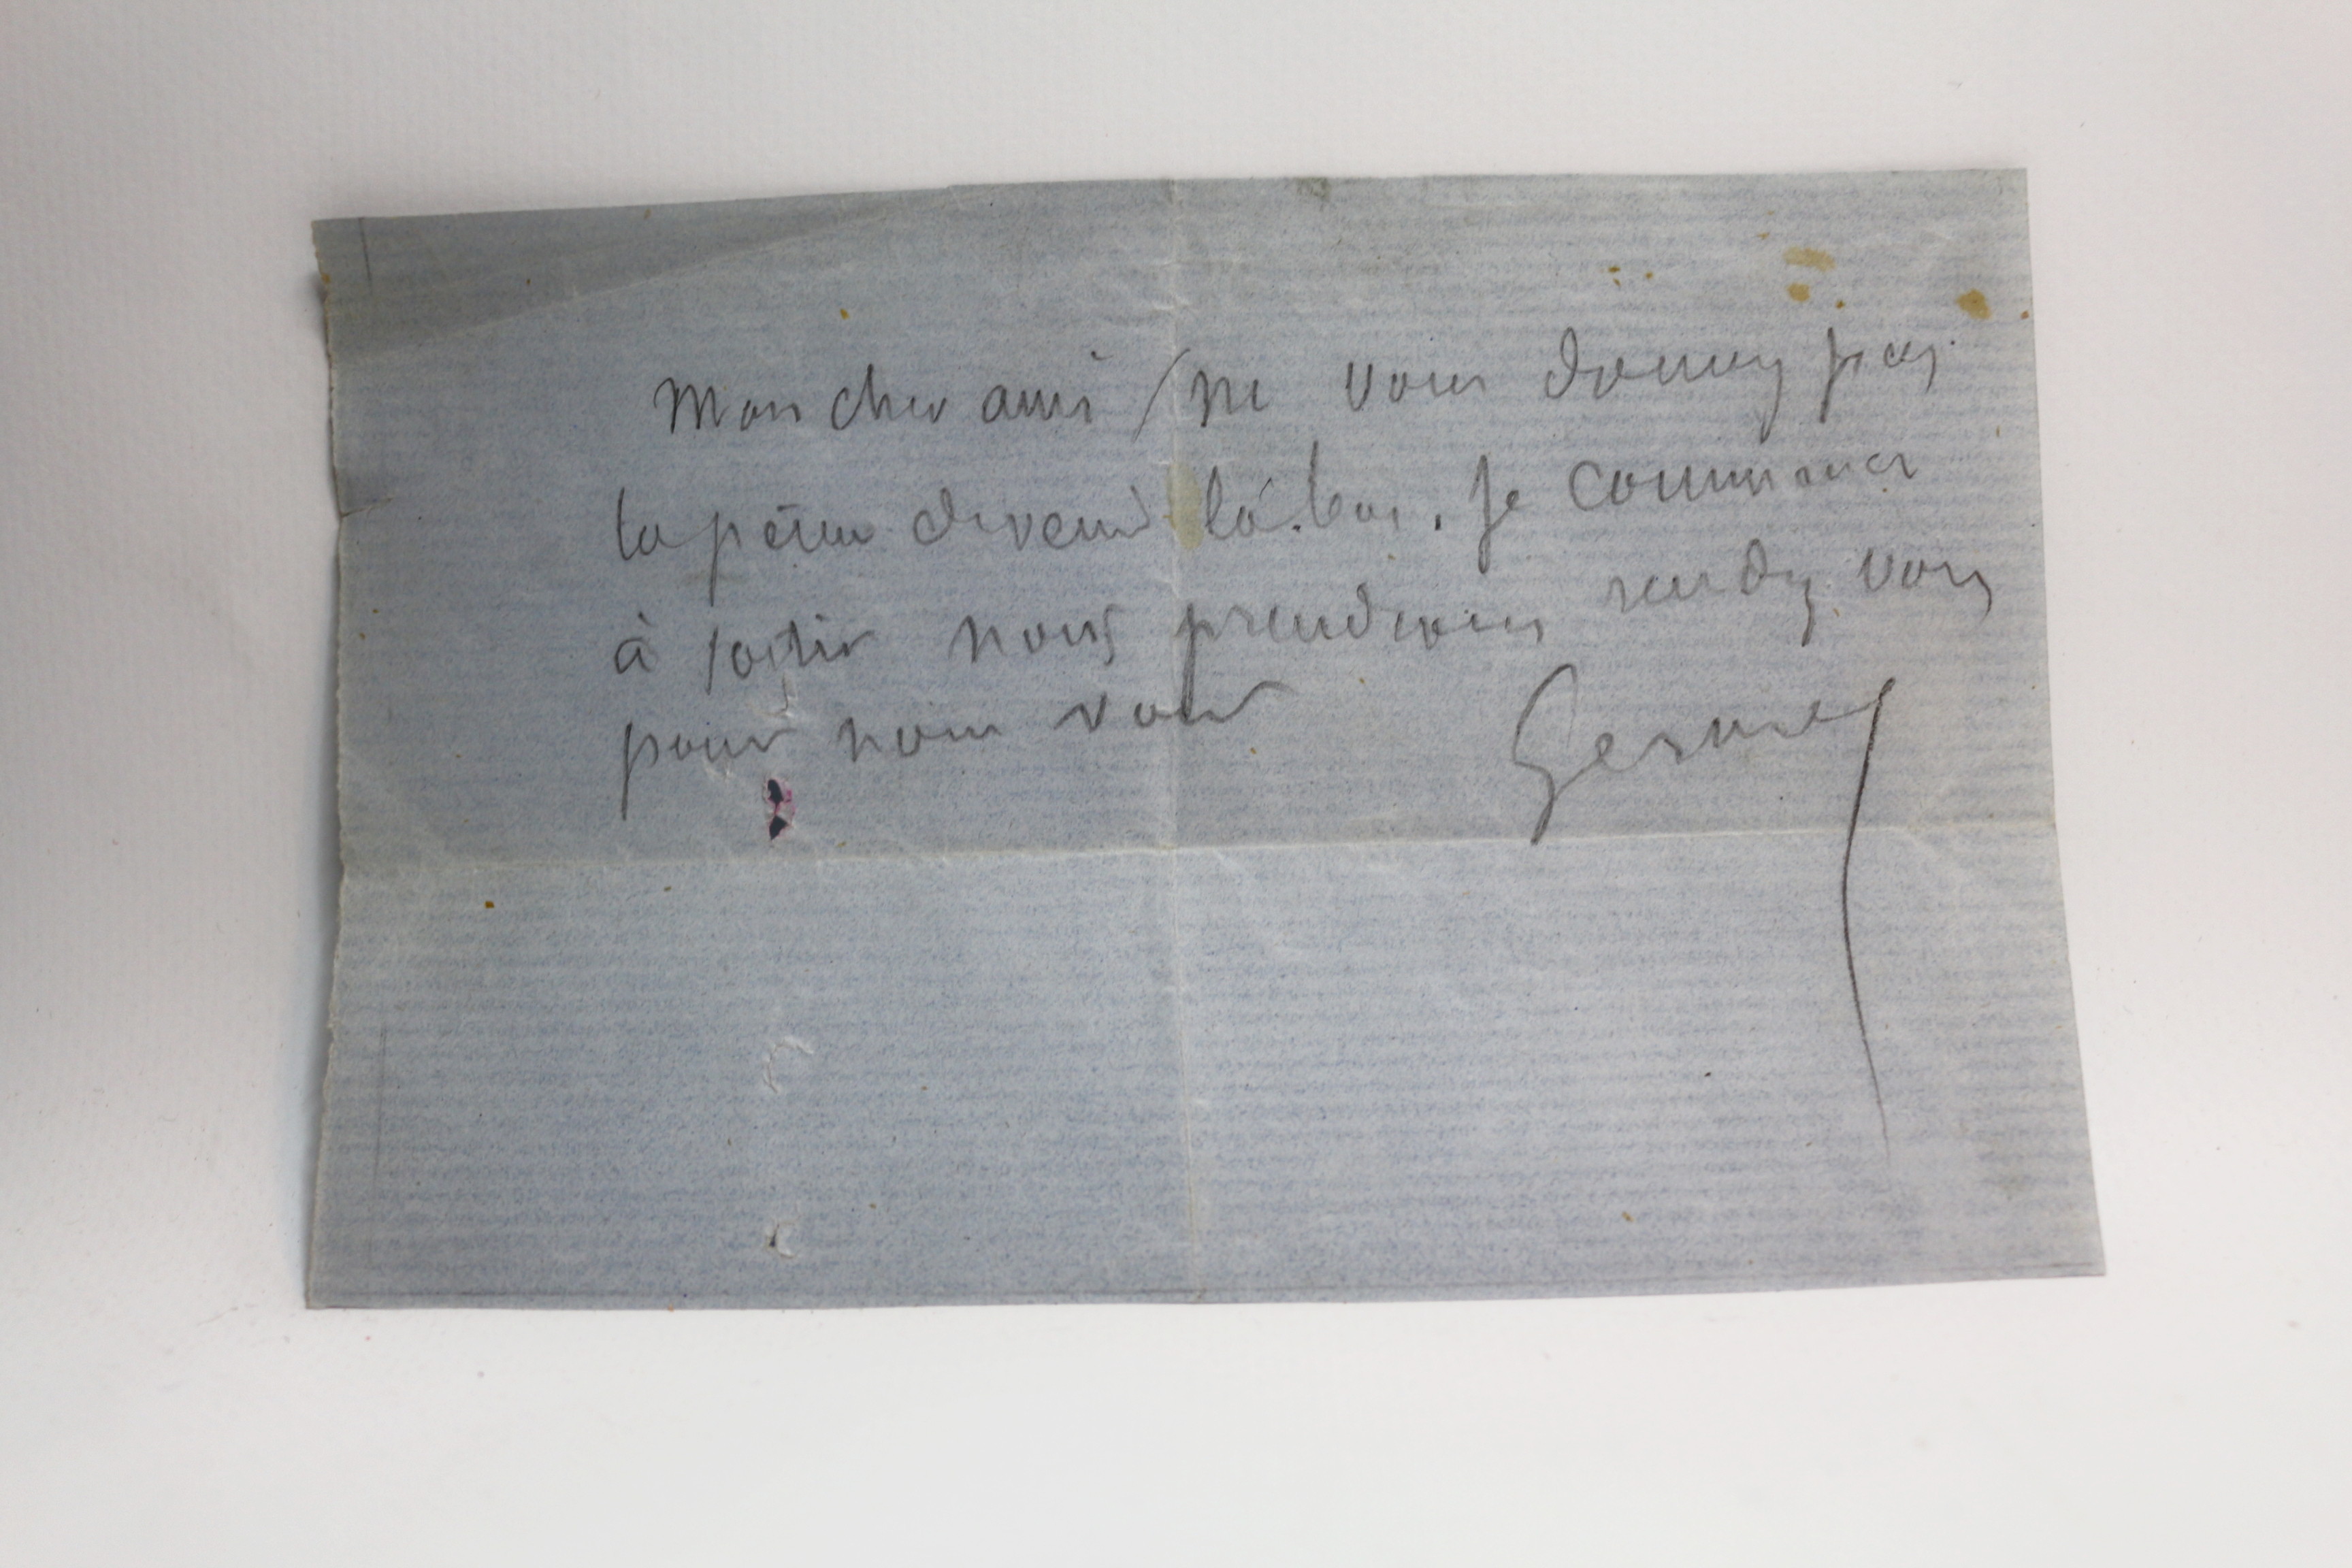 Mon cher ami ne vous donnez pas
la peine de venir là-bas. Je commence
à sortir nous prendrons rendez vous
pour nous voir